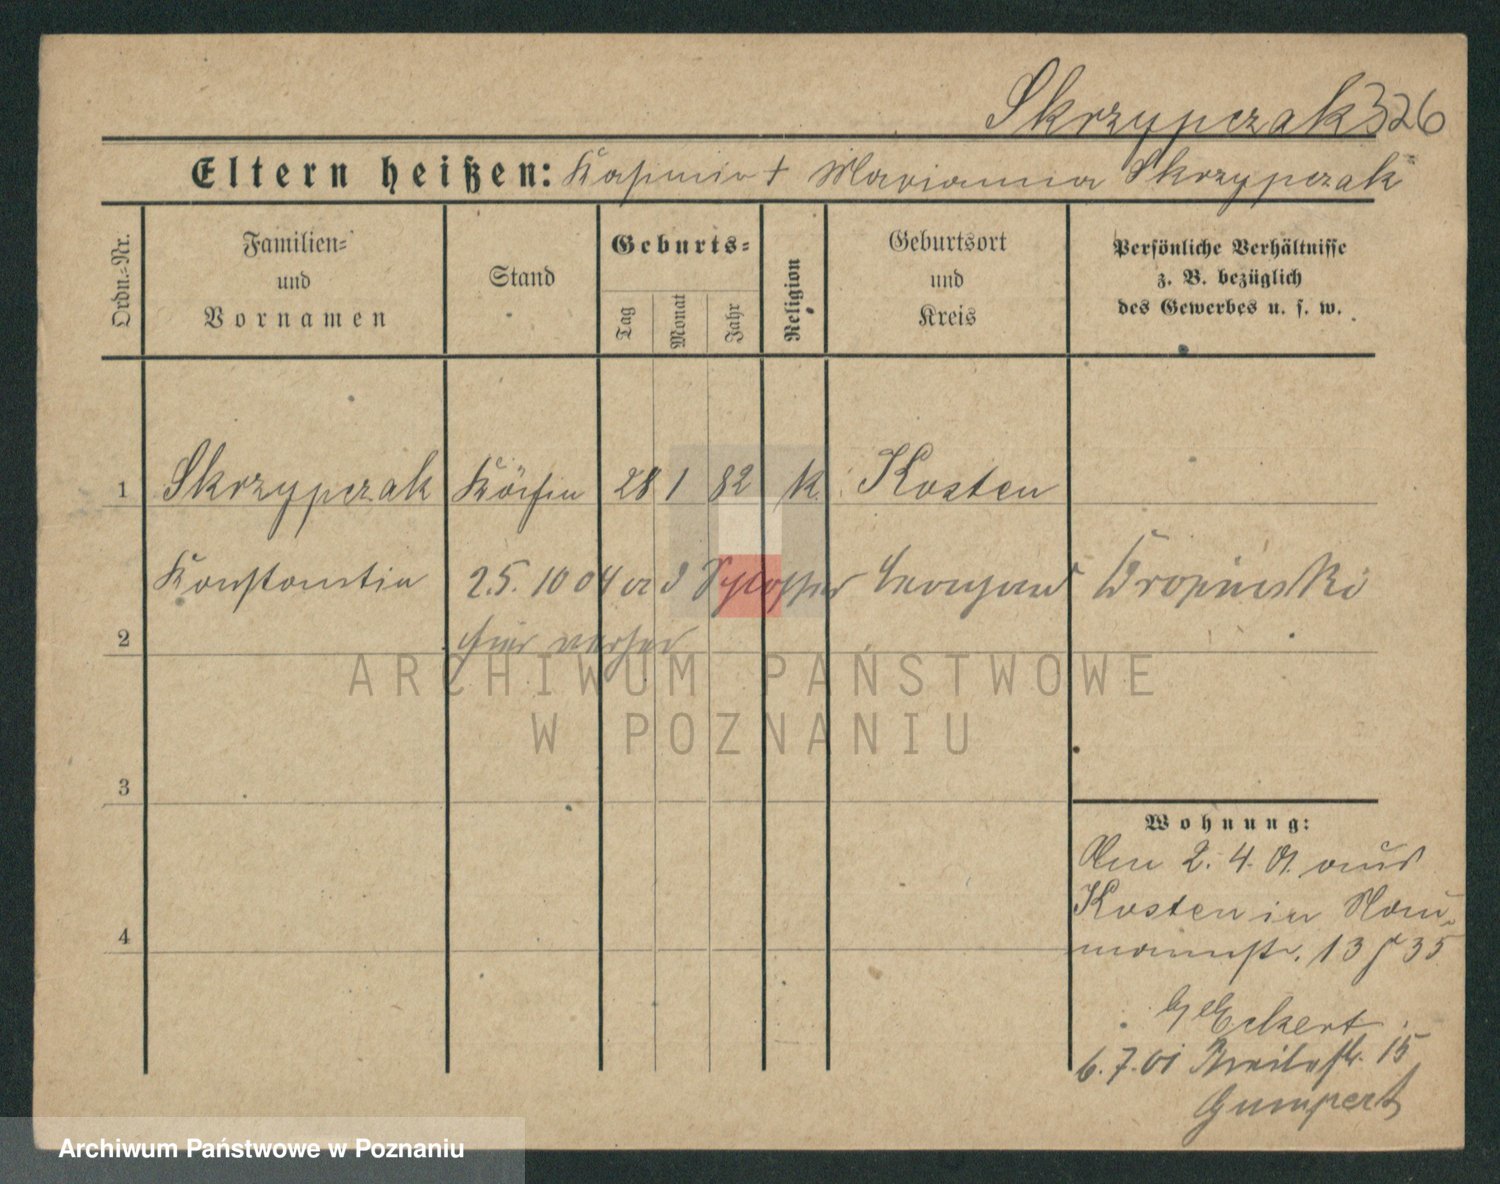 Skrzypczak 326
Eltern heißen: Kasimir + Marianna Skrzypczak
Ordn.-Nr.
Familien-
und
Vornamen
Stand
Geburts-
Tag
Monat
Jahr
Religion
Geburtsort
und
Kreis
Persönliche Verhältnisse
z. B. bezüglich
des Gewerbes u. s. w.
1 Skrzypczak Köchin 28 1 82 k. Kosten
Konstantin 25. 10 04 Kropinski
2
3
4
Wohnung:
Am 2. 4. 01. aus
Kosten in Nau-
mannstr. 13 35
Eckert
6. 7. 01 Breitestr. 15
Gumpert
ARCHIWUM PAŃSTWOWE
W POZNANIU
Archiwum Państwowe w Poznaniu